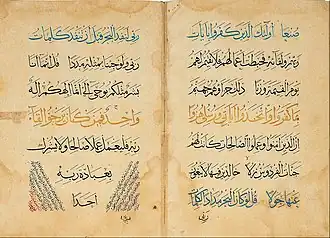 صنعا اولئك الذين كفروا بايات
ربهم ولقائه فحبطت اعمالهم فلا نقيم لهم
يوم القيمة وزنا ذلك جزاؤهم جهنم
بما كفروا واتخذوا اياتي ورسلي هزوا
ان الذين امنوا وعملوا الصالحات كانت لهم
جنات الفردوس نزلا خالدين فيها لا يبغون
عنها حولا قل لو كان البحر مدادا لكلمات
ربي لنفد البحر قبل ان تنفد كلمات
ربي ولو جئنا بمثله مددا قل انما انا
بشر مثلكم يوحى الي انما الهكم اله
واحد فمن كان يرجو لقاء
ربه فليعمل عملا صالحا ولا يشرك
بعبادة ربه
احدا